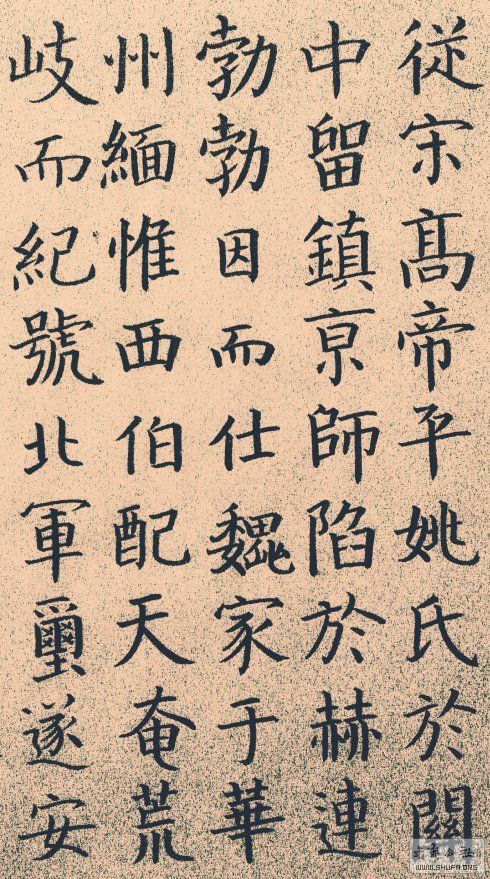 從宋髙帝平姚氏於關
中留鎮亰師陷於赫連
勃勃因而仕魏家于華
州緬惟西伯配天奄荒
岐而紀號北軍璽遂安
WWW.SHUFA.ORG